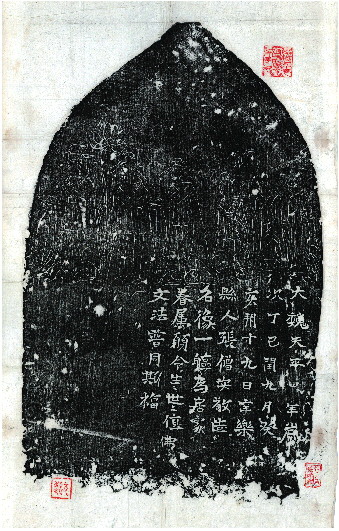 大魏天平四年歲
次丁巳閏九月癸
亥朔十九日樂
縣人張僧安敬造
名像一軀為居家
眷屬願令生世值佛
文法普同斯福